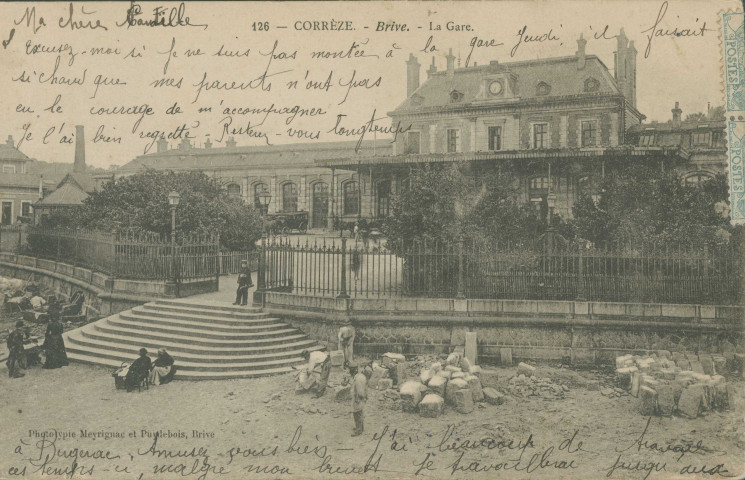 Ma chère Camille
126 — CORRÈZE. - Brive. — La Gare.
Excusez-moi si je ne suis pas montée à la gare jeudi. il faisait
si chaud que mes parents n'ont pas
eu le courage de m'accompagner
Je l'ai bien regretté - Resterez-vous longtemps
Phototypie Meyrignac et Puydebois, Brive
à Bugnac. Amusez-vous bien - J'ai beaucoup de travail
ces temps-ci, malgré mon brevet je travaillerai jusqu'aux